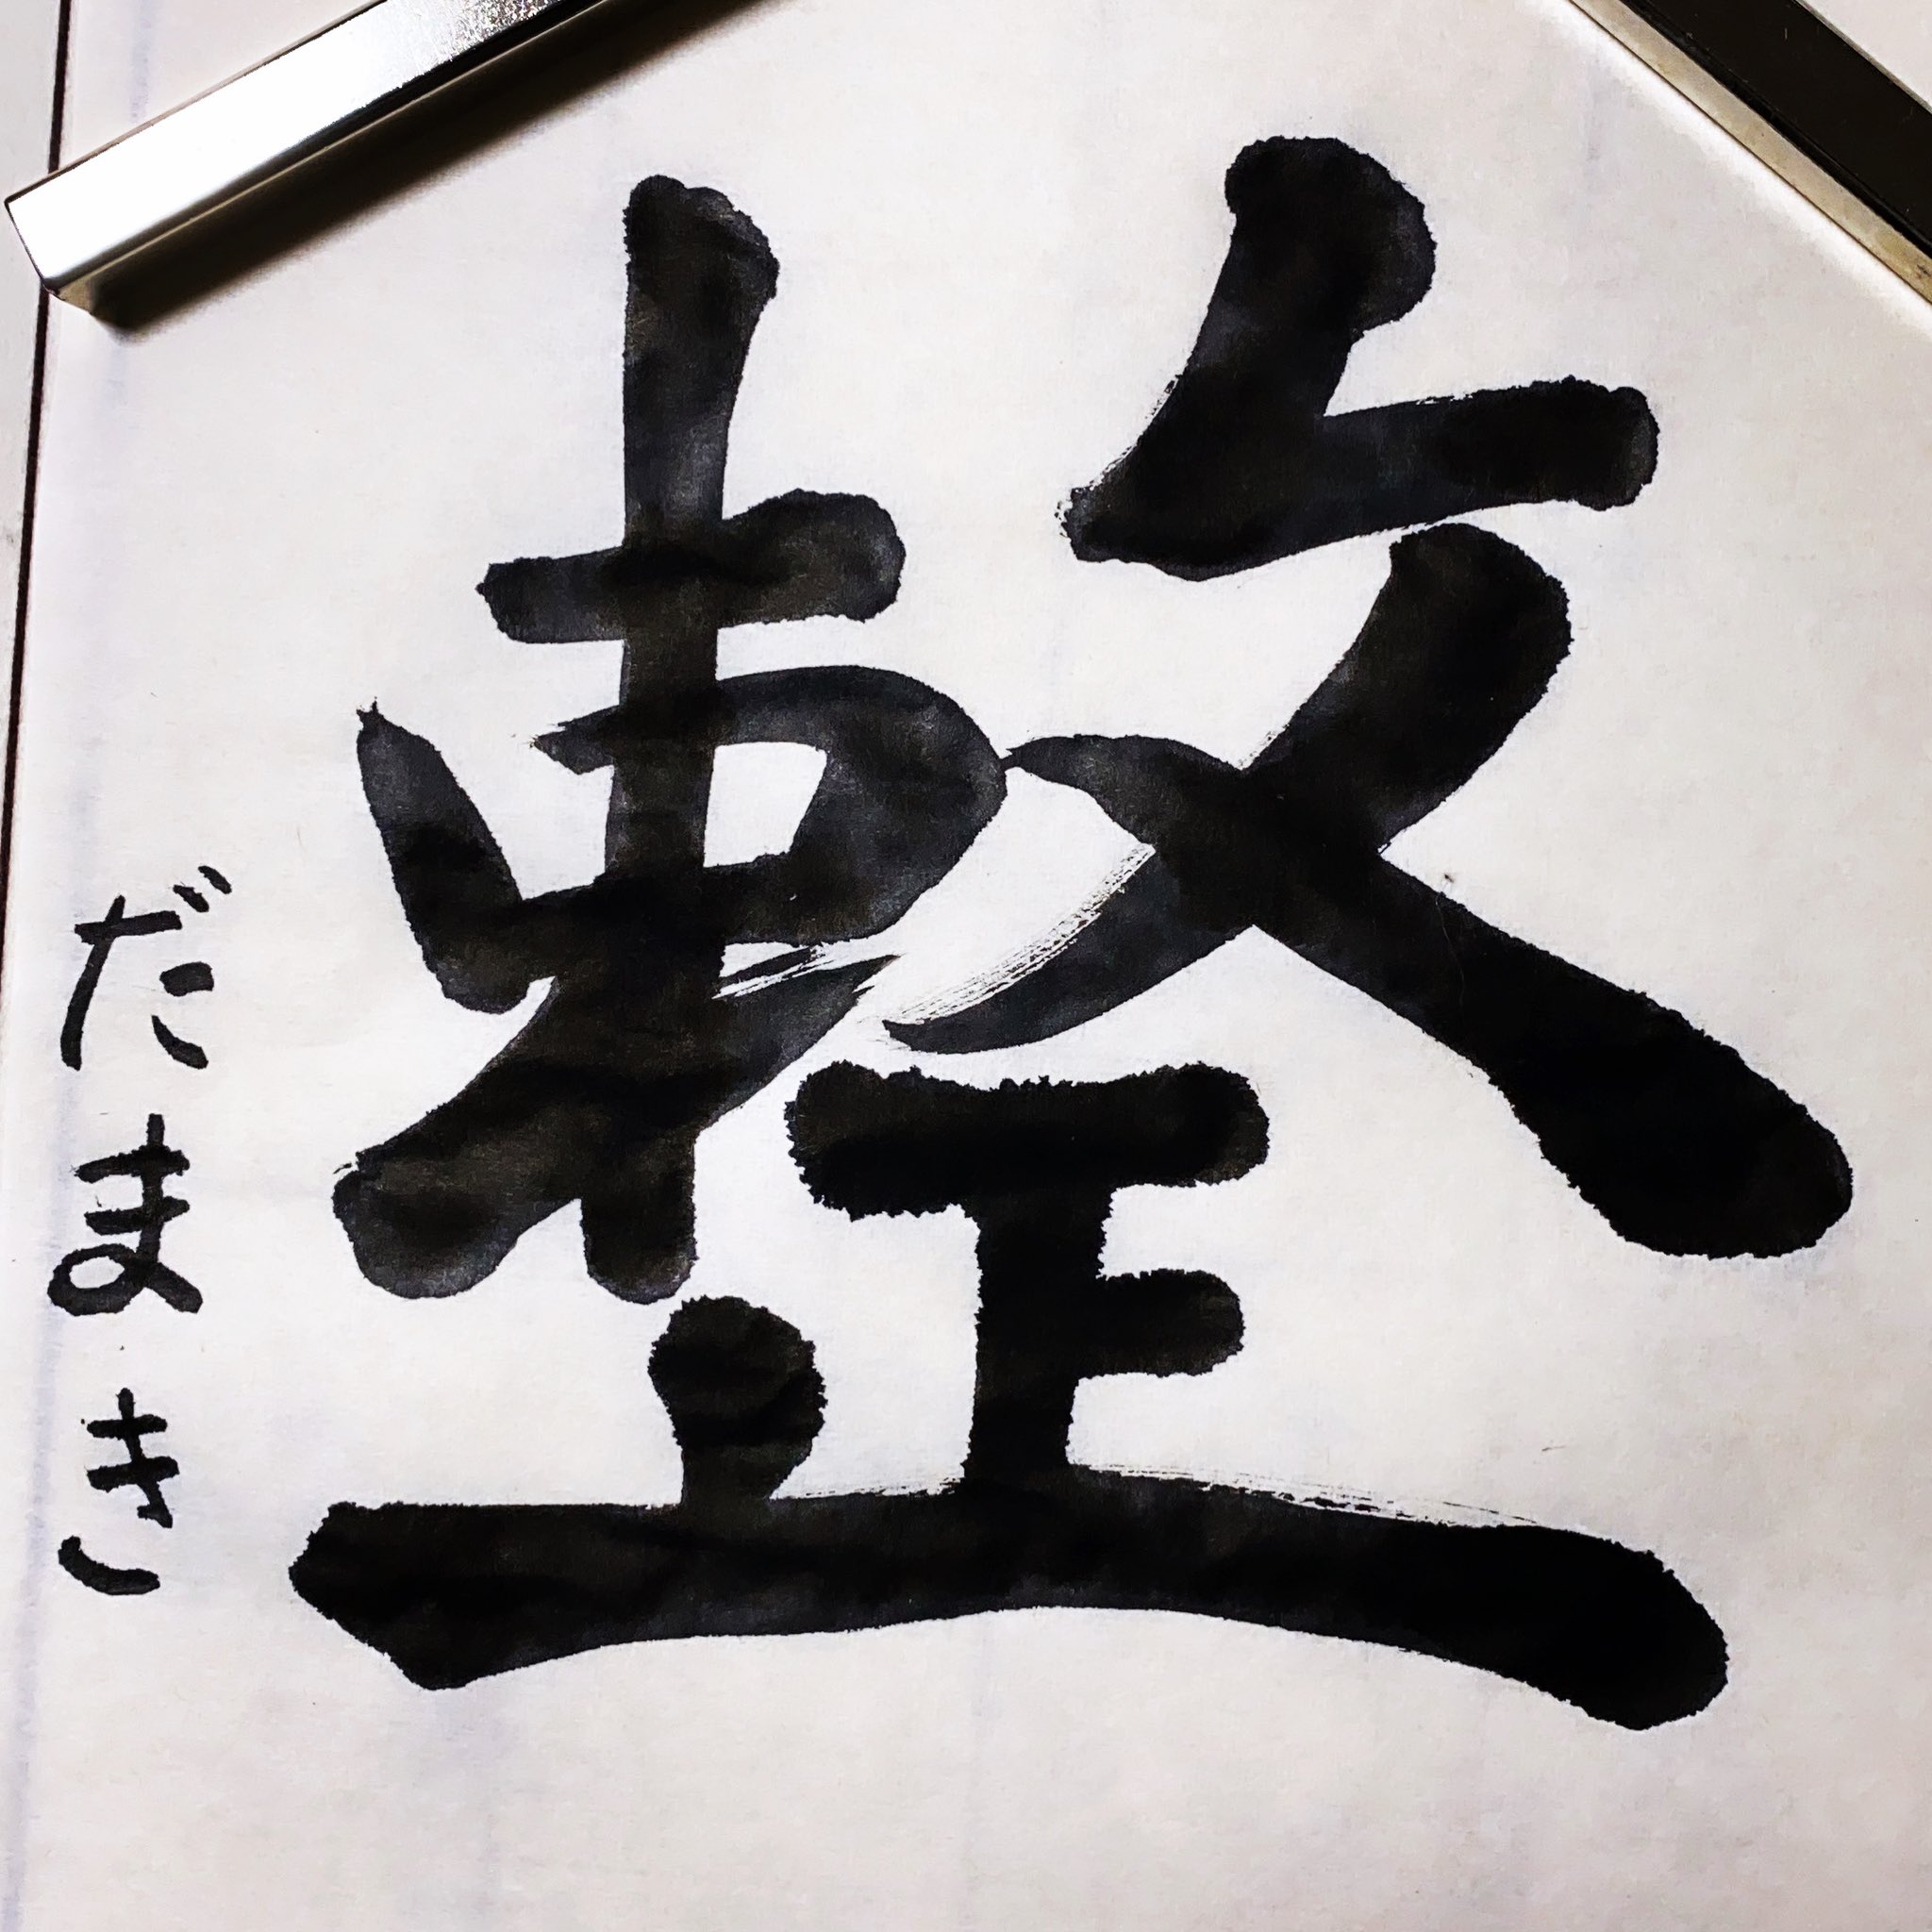 整
だまき